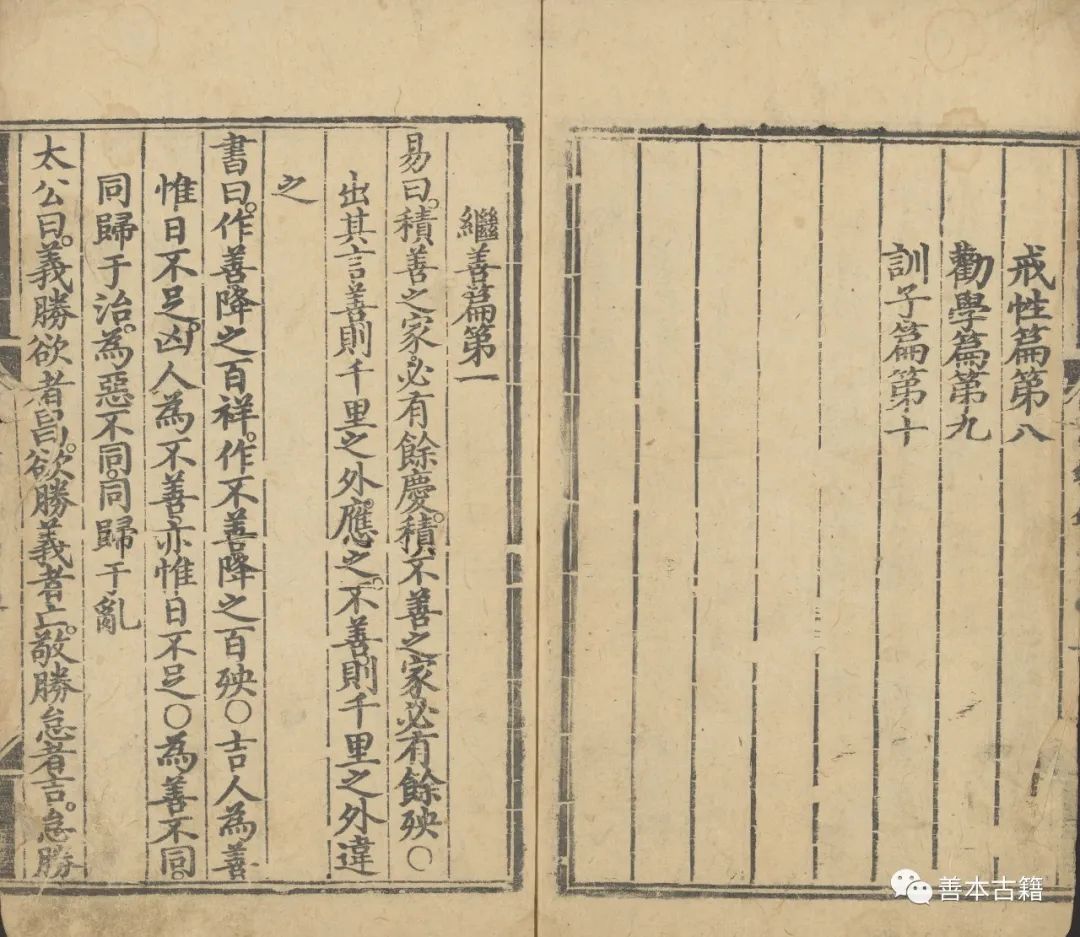 戒性篇第八
勸學篇第九
訓子篇第十
繼善篇第一
易曰。積善之家。必有餘慶。積不善之家。必有餘殃○
出其言善。則千里之外應之。不善。則千里之外違
之
書曰。作善降之百祥。作不善降之百殃○吉人為善
惟日不足。凶人為不善亦惟日不足○為善不同。
同歸于治。為惡不同。同歸于亂
太公曰。義勝欲者昌。欲勝義者亡。敬勝怠者吉。怠勝
善本古籍